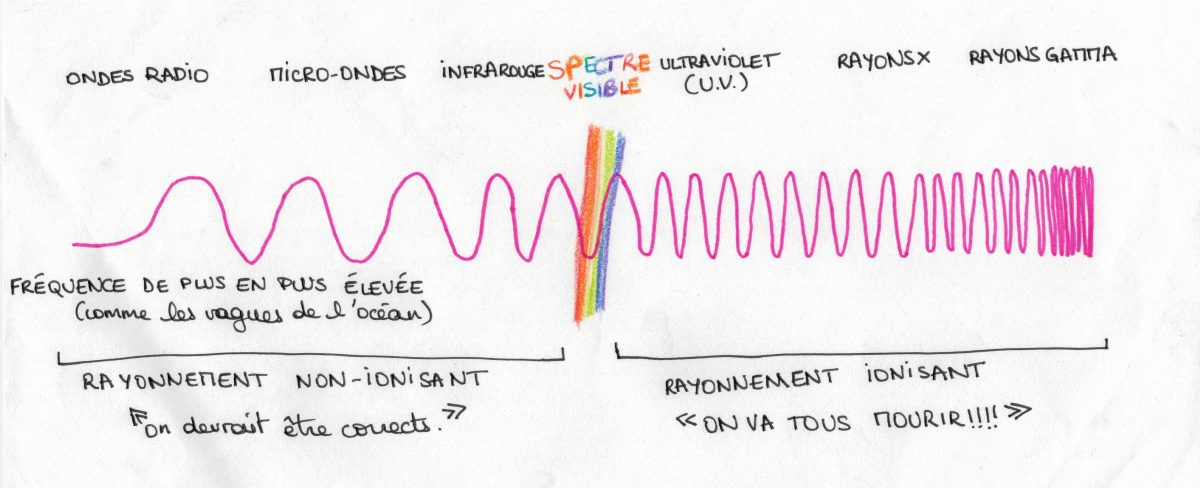 ONDES RADIO MICRO-ONDES INFRAROUGE SPECTRE ULTRAVIOLET RAYONS X RAYONS GAMMA
VISIBLE (U.V.)
FRÉQUENCE DE PLUS EN PLUS ÉLEVÉE
(comme les vagues de l'océan)
RAYONNEMENT NON-IONISANT RAYONNEMENT IONISANT
«on devrait être corrects.» «ON VA TOUS MOURIR!!!!»